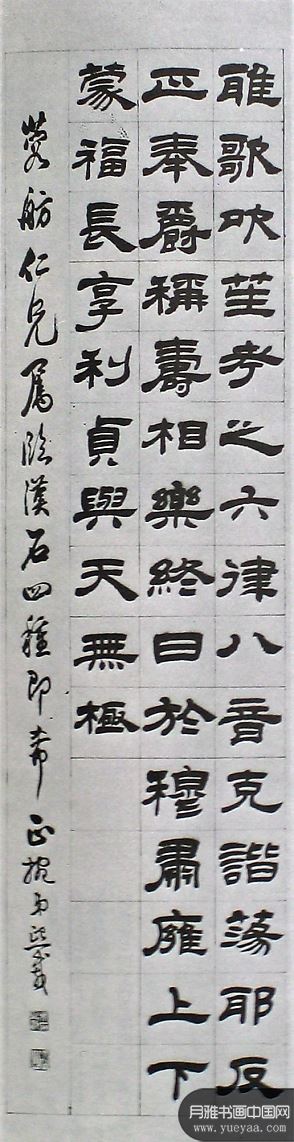 雅歌吹笙考之六律八音克諧蕩耶反
正奉爵稱壽相樂終日於穆肅廱上下
蒙福長享利貞與天無極
舫仁兄屬臨漢石四種即希正捥弟熙載
月雅书画中国网
www.yueyaa.com